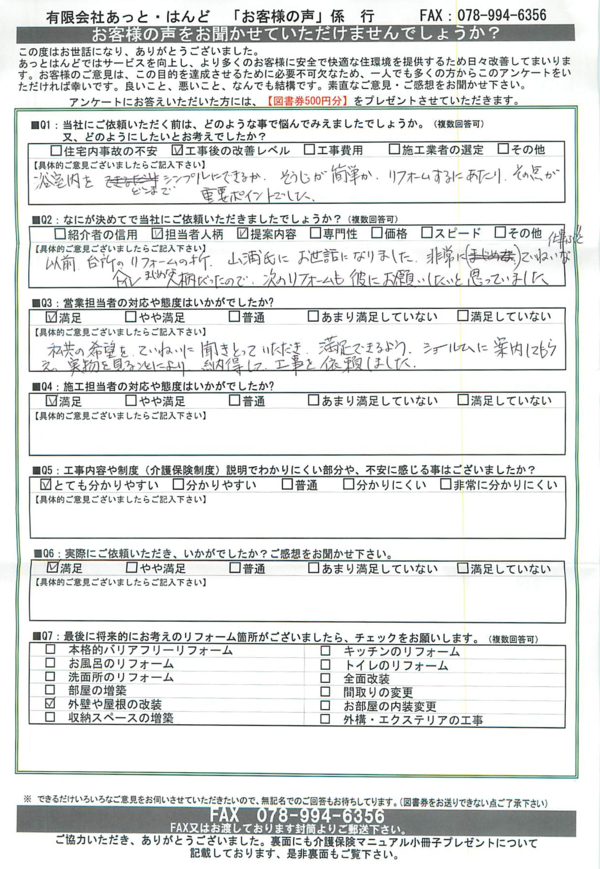 有限会社あっと・はんど 「お客様の声」係 行 FAX：078-994-6356
お客様の声をお聞かせていただけませんでしょうか？
この度はお世話になり、ありがとうございました。
あっとはんどではサービスを向上し、より多くのお客様に安全で快適な住環境を提供するため日々改善してまいります。お客様のご意見は、この目的を達成させるために必要不可欠なため、一人でも多くの方からこのアンケートをいただければ幸いです。良いこと、悪いこと、なんでも結構です。素直なご意見・ご感想をお聞かせ下さい。
アンケートにお答えいただいた方には、【図書券500円分】をプレゼントさせていただきます。
■Q1：当社にご依頼いただく前は、どのような事で悩んでみえましたでしょうか。（複数回答可）
又、どのようにしたいとお考えでしたか？
□住宅内事故の不安 ☑工事後の改善レベル □工事費用 □施工業者の選定 □その他
【具体的ご意見ございましたらご記入下さい】
浴室内を どこまで シンプルにできるか、そうじが簡単か、リフォームするにあたり、その点が
重要ポイントでした。
■Q2：なにが決めてで当社にご依頼いただきましたでしょうか？（複数回答可）
□紹介者の信用 ☑担当者人柄 ☑提案内容 □専門性 □価格 □スピード □その他
【具体的ご意見ございましたらご記入下さい】
以前、台所のリフォームの折、山満氏にお世話になりました。非常に ていねいな 仕事ぶりと
まじめな人柄だったので、次のリフォームも彼にお願いしたいと思っていました
■Q3：営業担当者の対応や態度はいかがでしたか？
☑満足 □やや満足 □普通 □あまり満足していない □満足していない
【具体的ご意見ございましたらご記入下さい】
私共の希望を、ていねいに聞きとっていただき、満足できるよう、ショールームに案内してもら
え、実物を見ることにより、納得して、工事を依頼しました。
■Q4：施工担当者の対応や態度はいかがでしたか？
☑満足 □やや満足 □普通 □あまり満足していない □満足していない
【具体的ご意見ございましたらご記入下さい】
■Q5：工事内容や制度（介護保険制度）説明でわかりにくい部分や、不安に感じる事はございましたか？
☑とても分かりやすい □分かりやすい □普通 □分かりにくい □非常に分かりにくい
【具体的ご意見ございましたらご記入下さい】
■Q6：実際にご依頼いただき、いかがでしたか？ご感想をお聞かせ下さい。
☑満足 □やや満足 □普通 □あまり満足していない □満足していない
【具体的ご意見ございましたらご記入下さい】
■Q7：最後に将来的にお考えのリフォーム箇所がございましたら、チェックをお願いします。（複数回答可）
□ 本格的バリアフリーリフォーム □ キッチンのリフォーム
□ お風呂のリフォーム □ トイレのリフォーム
□ 洗面所のリフォーム □ 全面改装
□ 部屋の増築 □ 間取りの変更
☑ 外壁や屋根の改装 □ お部屋の内装変更
□ 収納スペースの増築 □ 外構・エクステリアの工事
※ できるだけいろいろなご意見をお伺いさせていただきたいので、無記名でのご回答もお待ちしてります。（図書券をお送りできない点ご了承下さい）
FAX 078-994-6356
FAX又はお渡ししております封筒よりご郵送下さい。
ご協力いただき、ありがとうございました。裏面にも介護保険マニュアル小冊子プレゼントについて
記載しております、是非裏面もご覧下さい。